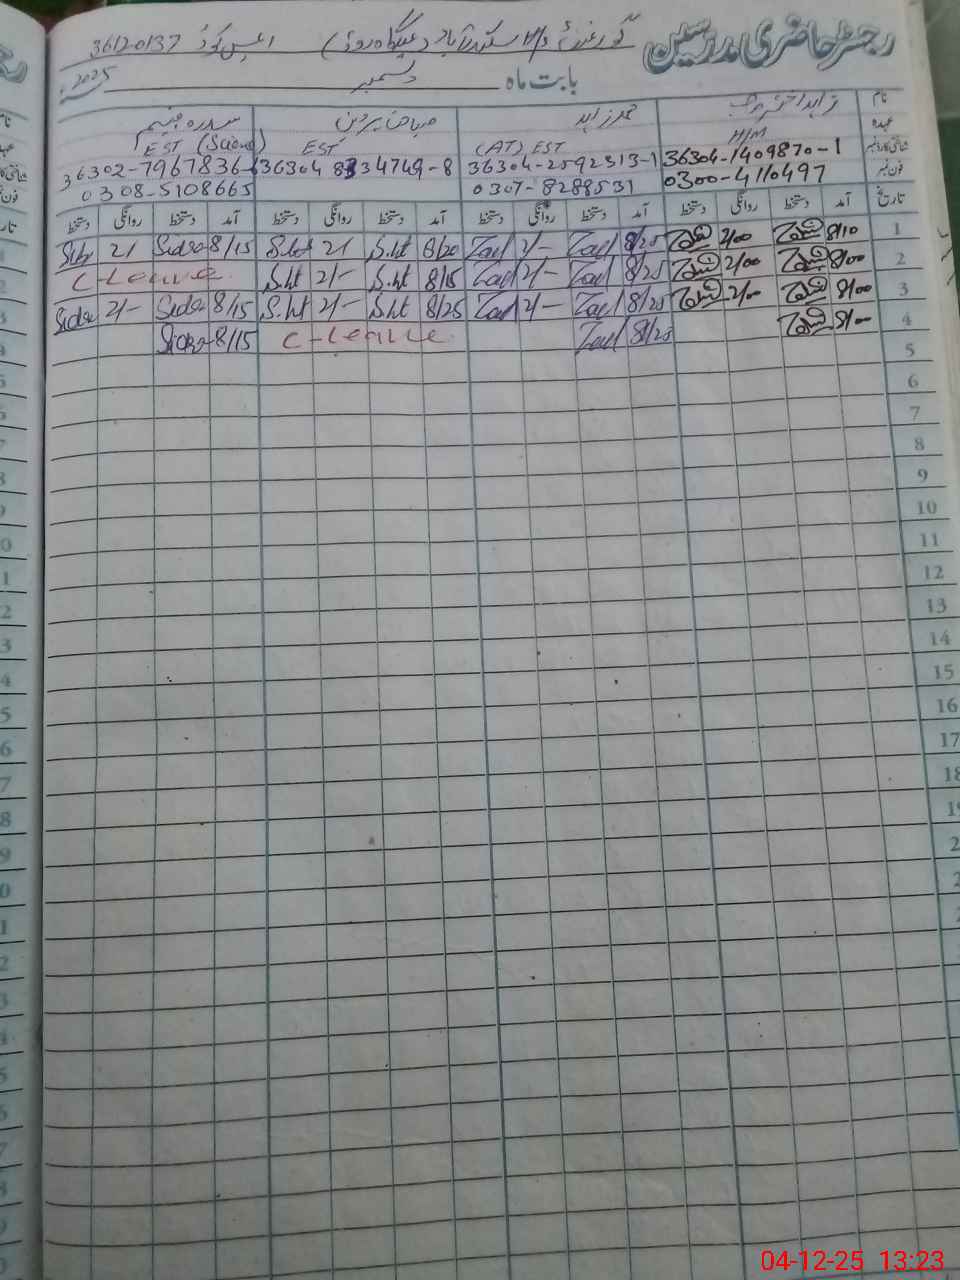 رجسٹر حاضری مدرسین گورنمنٹ H/S سکندرآباد (عیدگاہ روڈ) ایمس کوڈ 36120137
بابت ماہ دسمبر 2025
نام زاہد اختر محمد زاہد صباحت پروین سدرہ
عہدہ H/M (AT) EST EST EST (Science)
شناختی کارڈ نمبر 36304-1409870-1 36304-2592313-1 36304 8334749-8 36302-7967836-
فون نمبر 0300-4110497 0307-8288531 0308-5108665
تاریخ آمد دستخط روانگی دستخط آمد دستخط روانگی دستخط آمد دستخط روانگی دستخط آمد دستخط روانگی دستخط
1 8/10 2/00 8/25 Zael 2/- Zael 8/20 S.ht 21 S.ht 8/15 Sidra 21 Sidra
2 8/00 2/00 8/25 Zael 2/- Zael 8/15 S.ht 2/- S.ht C-Leave
3 8/00 2/00 8/25 Zael 2/- Zael 8/25 S.ht 2/- S.ht 8/15 Sidra 2/- Sidra
4 8/00 8/25 Zael C-Leave 8/15 Sidra
5
6
7
8
9
10
11
12
13
14
15
16
17
18
04-12-25 13:23